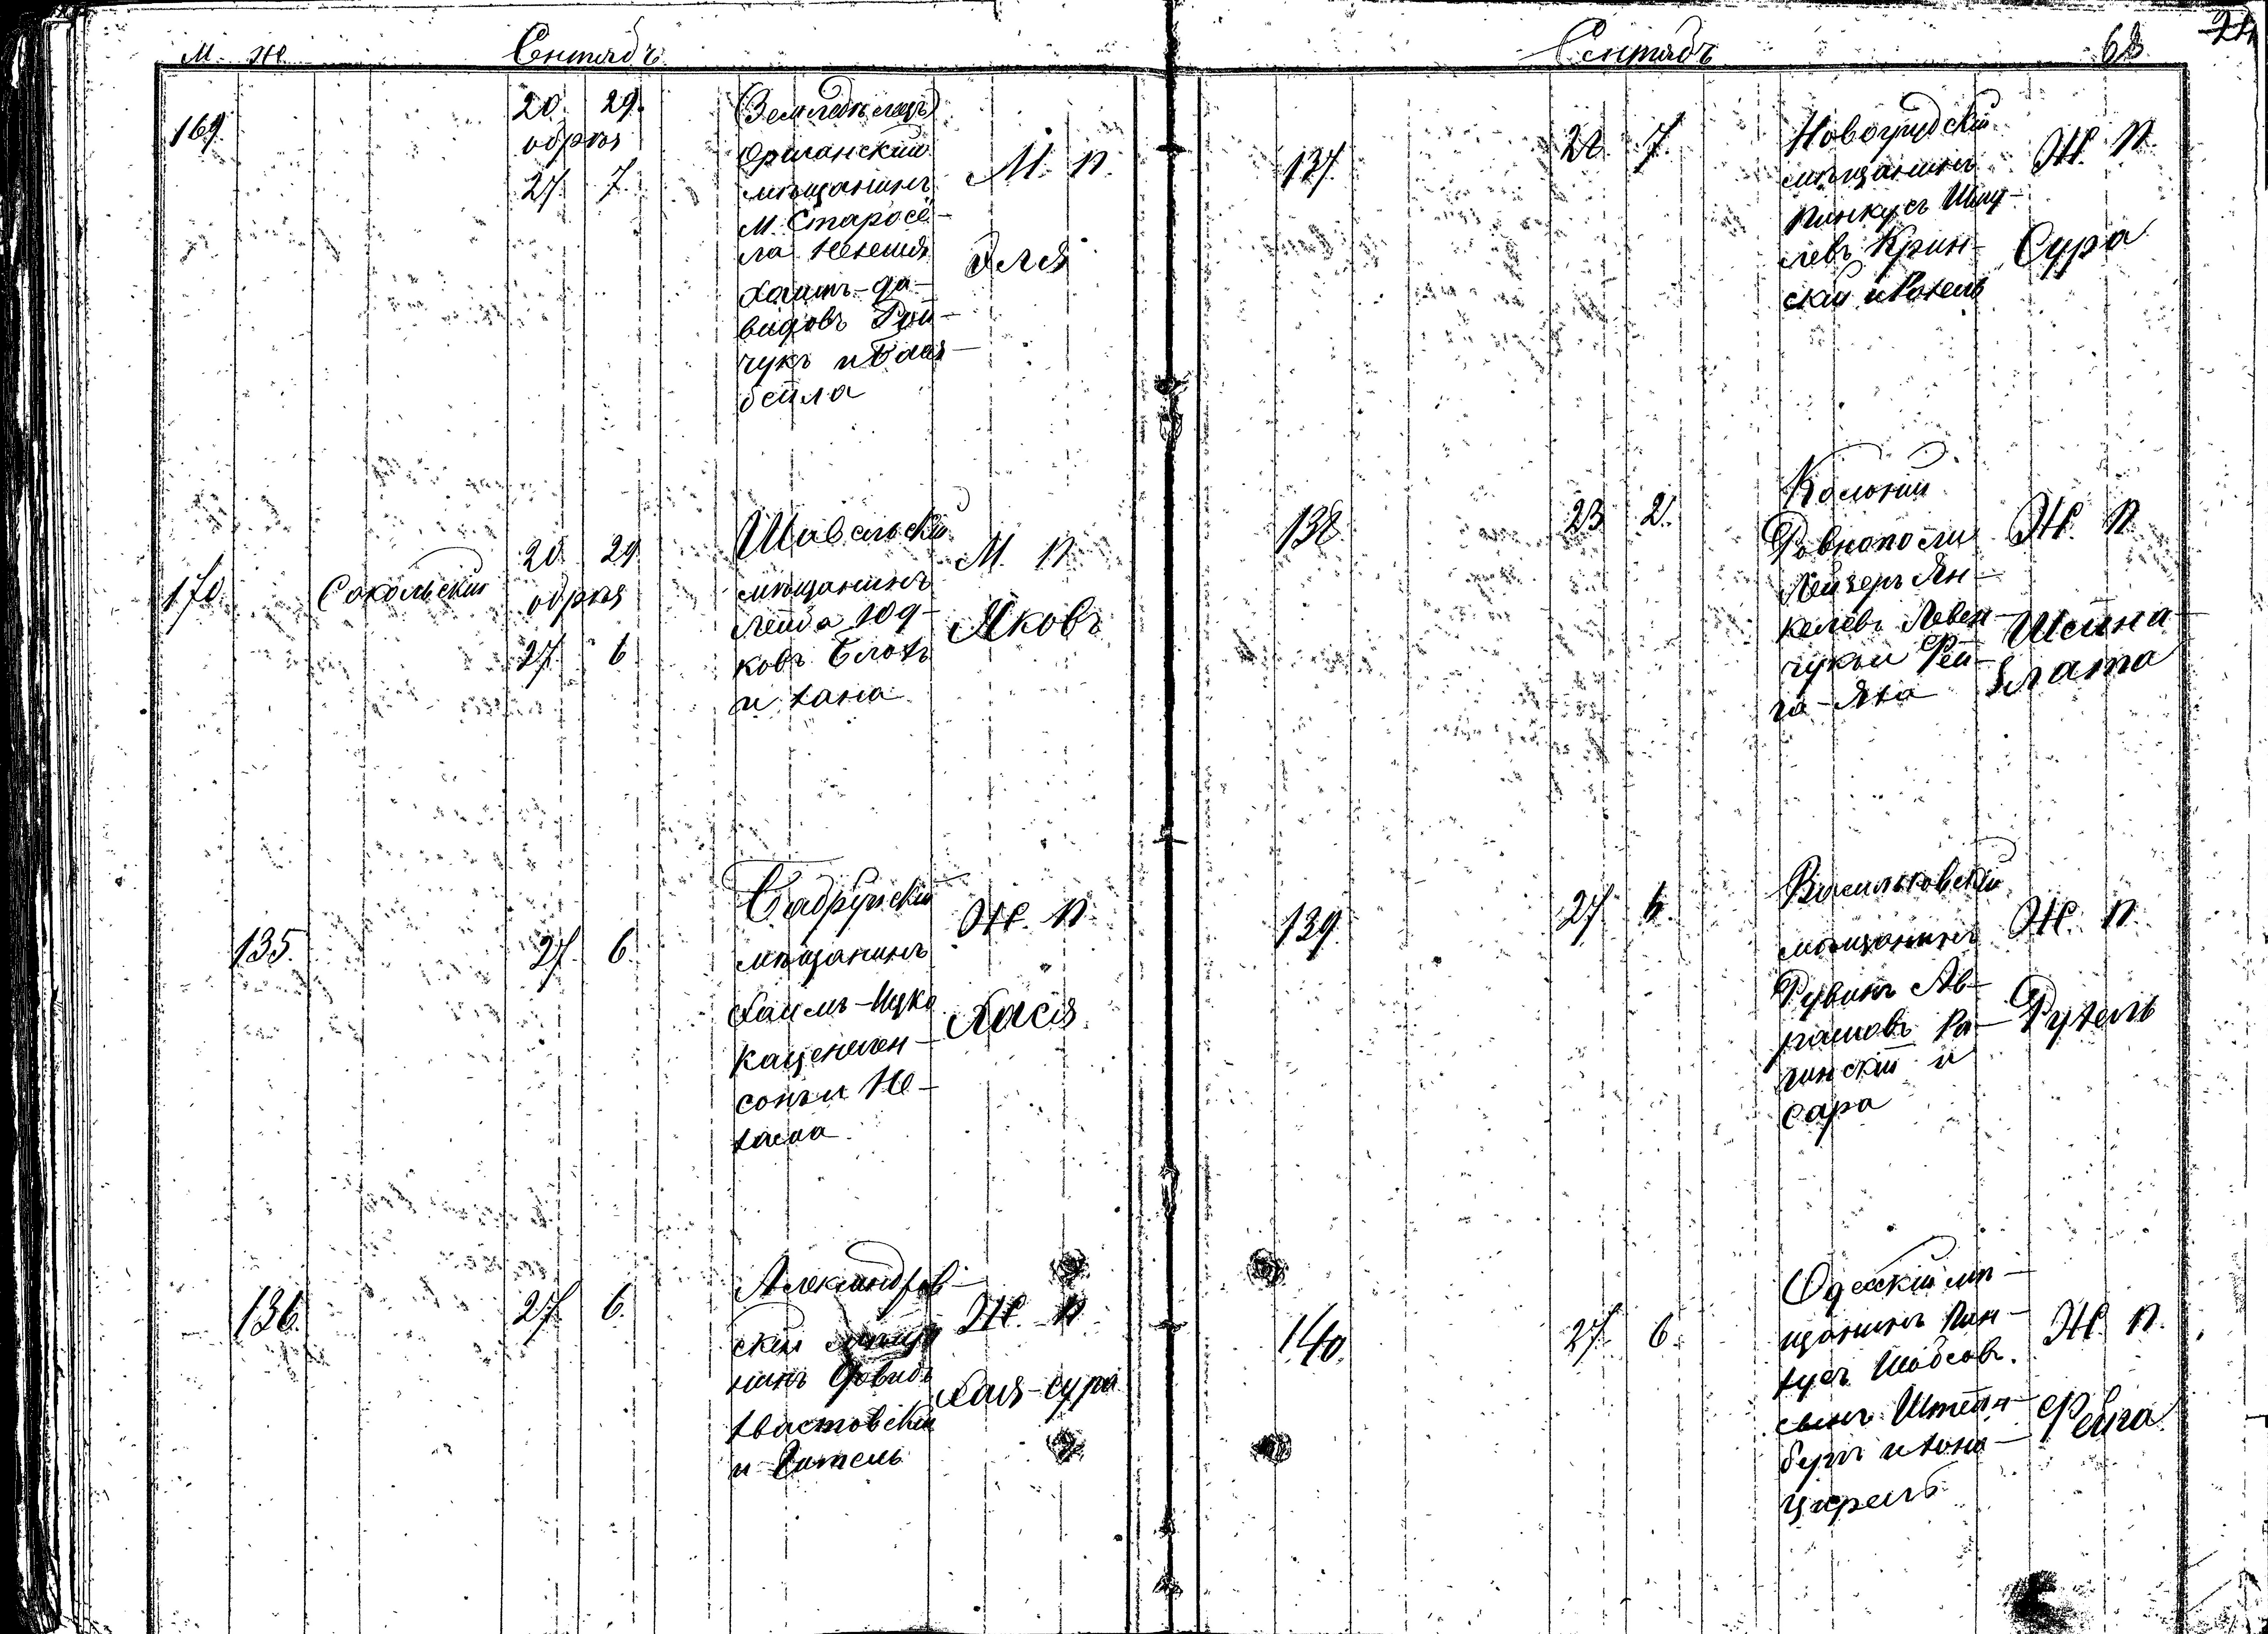 М. Ж. Сентябъ
169. 20. 29. обрѣз 27. 7.
(Земледѣлецъ)
Оршанскій
мѣщанинъ
М. Старосе-
ла
Хаимъ-Да-
видовъ
чукъ и Бая-
бейла
М. п.
170. Сокольскій 20. 29. обрѣз 27. 6
Шавельскій
мѣщанинъ
Лейба Юд-
ковъ Блохъ
и Хана
М. п.
Яковъ
135. 27. 6.
Бобруйскій
мѣщанинъ
Хаимъ-Ицко
Каценелен-
сонъ и Не-
хама
Ж. п.
Хася
136. 27. 6.
Александров-
скій мѣща
нинъ Довидъ
Хвастовскій
и Гитель
Ж. п.
Хая-Сура
Сентябъ 68
137. 7.
Новогрудскій
мѣщанинъ
Пинкусъ Шму-
левъ Крин-
скій и Рохель
Ж. п.
Сура
138 23 2.
Колоніи
Ровнополи
Лейзеръ Ян-
келевъ Левен-
чукъ и Фей-
га-Яха
Ж. п.
Шейна-
Злата
139. 27. 6.
Васильковскій
мѣщанинъ
Рувинъ Ав-
рамовъ Ра-
гинскій и
Сара
Ж. п.
Рухель
140. 27. 6
Одесскій мѣ-
щанинъ Пин-
хусъ Шабсов.
сынъ Штейн-
бергъ и Хана-
Цирель
Ж. п.
Фейга